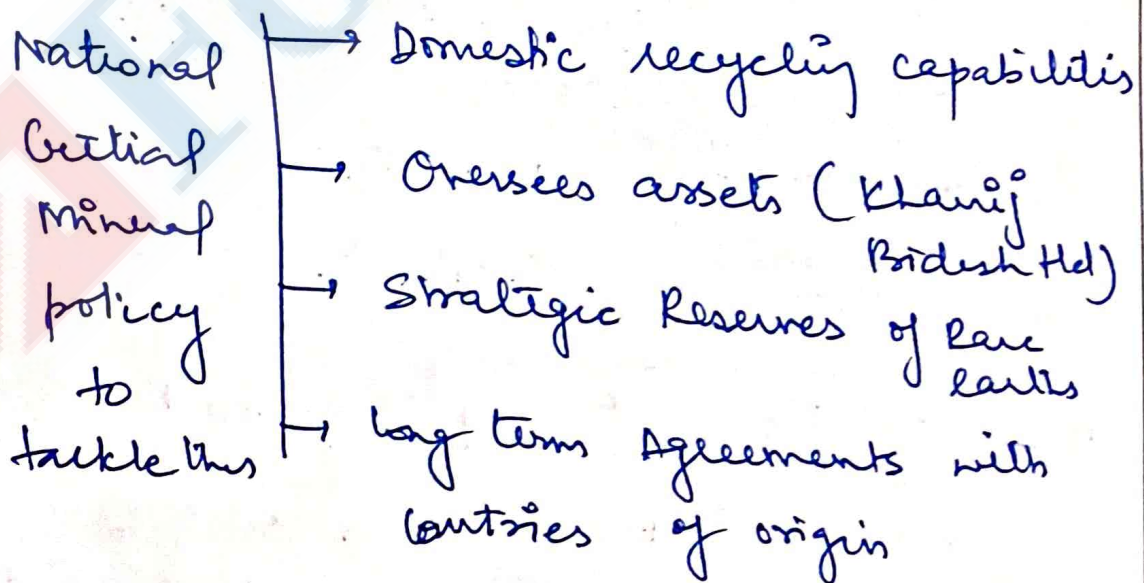 National
Critial
Mineral
policy
to
tackle this
→ Domestic recycling capabilitis
→ Oversees assets (Khanij
Bidesh Ltd)
→ Strategic Reserves of Rare
earths
→ long term Agreements with
countries of origin